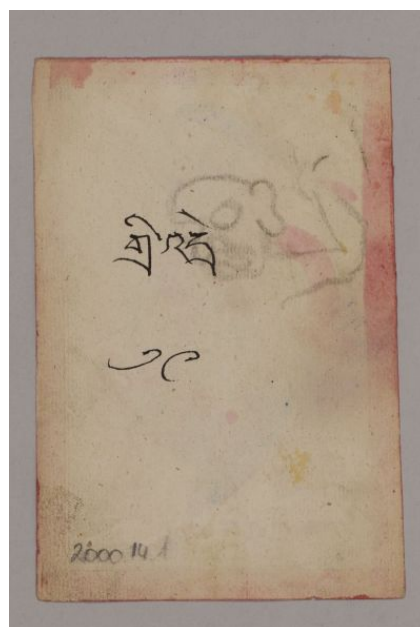 གྲི་འདྲེ
2000.14.1